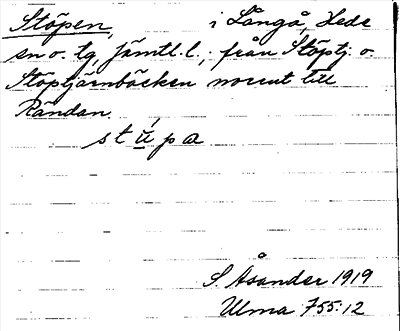 Stöpen, i Långå, Hede
sn o. tg, Jämtl. l., från Stöptj. o.
Stöptjärnbäcken norrut till
Rändan.
stúpa
S. Åsander 1919
Ulma 755:12